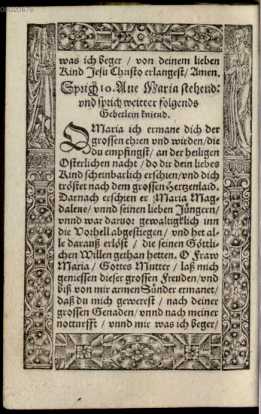 was ich beger / von deinem lieben
Kind Jesu Christo erlangest / Amen.
Sprich 10. Aue Maria stehend:
vnd sprich weitter folgends
Gebetlein kniend.
O Maria ich ermane dich der
grossen ehren vnd würden / die
du empfingst / an der heiligen
Osterlichen nacht / do dir dein liebes
Kind scheinbarlich erschien / vnd dich
tröstet nach dem grossen Hertzenlaid.
Darnach erschien er Maria Mag-
dalene / vnnd seinen lieben Jüngern /
vnnd war daruor gewaltigklich inn
die Vorhell abgestiegen / vnd het al-
le darauß erlöst / die seinen Göttli-
chen Willen gethan hetten. O Fraw
Maria / Gottes Mutter / laß mich
geniessen dieser grossen Freuden / vnd
biß von mir armen Sünder ermanet /
daß du mich gewerest / nach deiner
grossen Genaden / vnnd nach meiner
notturfft / vnnd mir was ich beger /